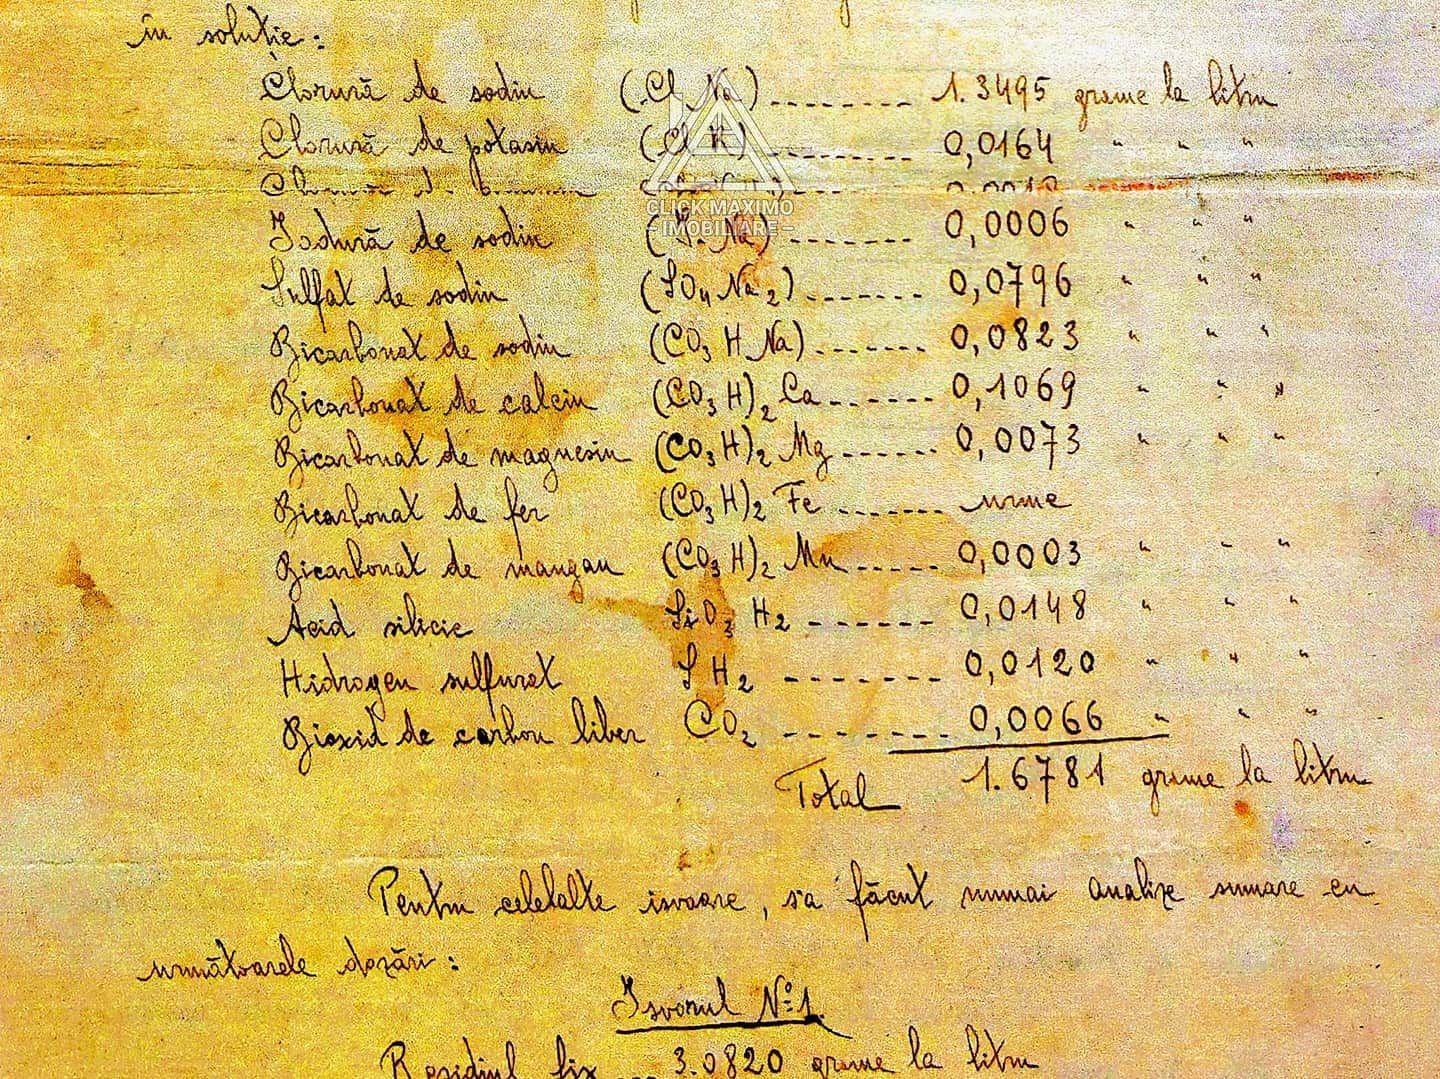 în soluție:
Clorură de sodiu (Cl Na) -------- 1.3495 grame la litru
Clorură de potasiu (Cl K) -------- 0,0164 " " "
Iodură de sodiu (I. Na) -------- 0,0006 " " "
CLICK MAXIMO
- IMOBILIARE -
Sulfat de sodiu (SO4 Na2) -------- 0,0796 " " "
Bicarbonat de sodiu (CO3 H Na) -------- 0,0823 " " "
Bicarbonat de calciu (CO3 H)2 Ca ------- 0,1069 " " "
Bicarbonat de magnesiu (CO3 H)2 Mg ------- 0,0073 " " "
Bicarbonat de fer (CO3 H)2 Fe ------- urme
Bicarbonat de mangan (CO3 H)2 Mn ------- 0,0003 " " "
Acid silicic SiO3 H2 -------- 0,0148 " " "
Hidrogen sulfurat S H2 -------- 0,0120 " " "
Bioxid de carbon liber CO2 -------- 0,0066 " " "
Total 1.6781 grame la litru
Pentru celelalte isvoare, s'a făcut numai analize sumare cu
următoarele dozări:
Isvorul No 1.
Residiul fix 3.0820 grame la litru